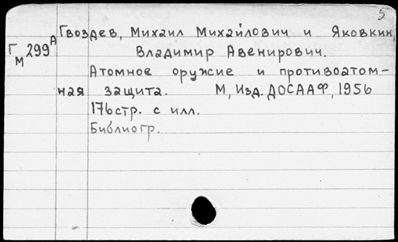 5
Гвоздев, Михаил Михайлович и Яковкин,
Г 299 А
М
Владимир Авенирович.
Атомное оружие и противоатом-
ная защита. М, Изд. ДОСААФ, 1956
176 стр. с илл.
Библиогр.